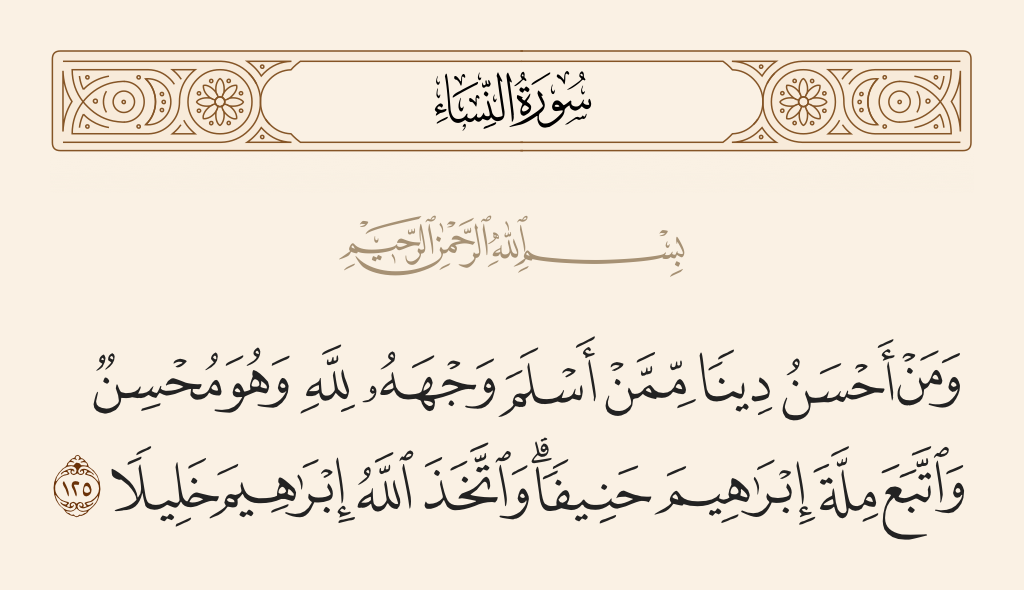 سُورَةُ النِّسَاءِ
بِسْمِ ٱللَّهِ ٱلرَّحْمَٰنِ ٱلرَّحِيمِ
وَمَنْ أَحْسَنُ دِينًا مِّمَّنْ أَسْلَمَ وَجْهَهُۥ لِلَّهِ وَهُوَ مُحْسِنٌ
وَٱتَّبَعَ مِلَّةَ إِبْرَٰهِيمَ حَنِيفًا ۗ وَٱتَّخَذَ ٱللَّهُ إِبْرَٰهِيمَ خَلِيلًا ١٢٥